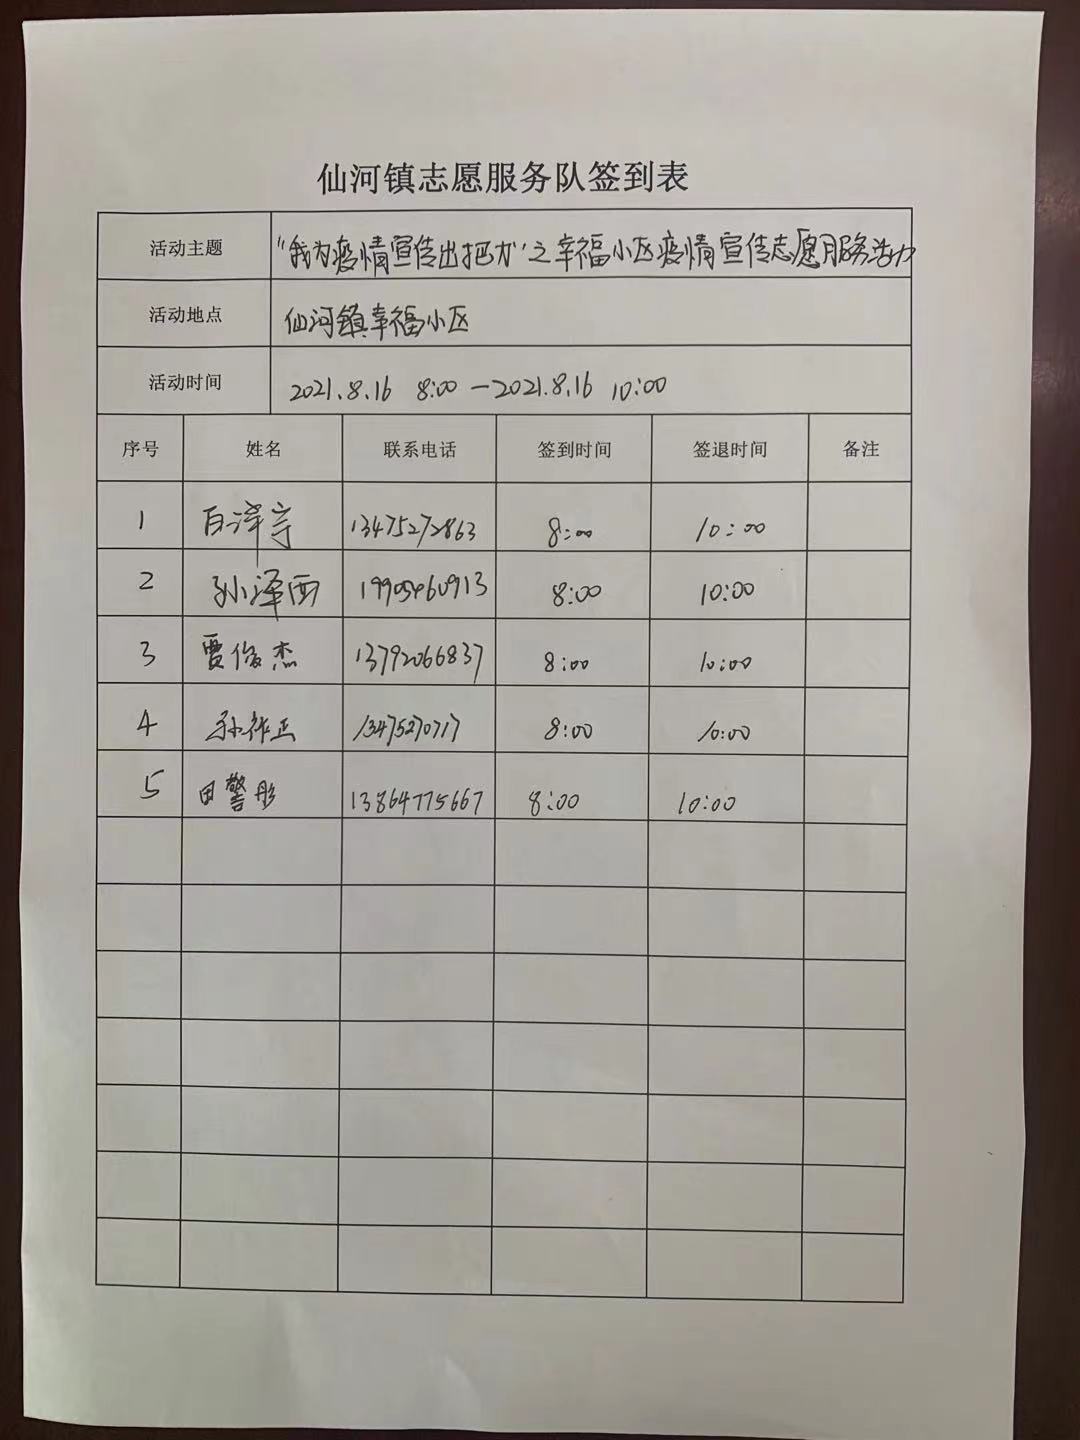 仙河镇志愿服务队签到表
活动主题 “我为疫情宣传出把力”之幸福小区疫情宣传志愿服务活动
活动地点 仙河镇幸福小区
活动时间 2021.8.16 8:00 —2021.8.16 10:00
序号 姓名 联系电话 签到时间 签退时间 备注
1 百泽宇 13475272863 8:00 10:00
2 孙泽西 19905460913 8:00 10:00
3 贾俊杰 13792066837 8:00 10:00
4 孙祚正 13475270717 8:00 10:00
5 田警彤 13864775667 8:00 10:00